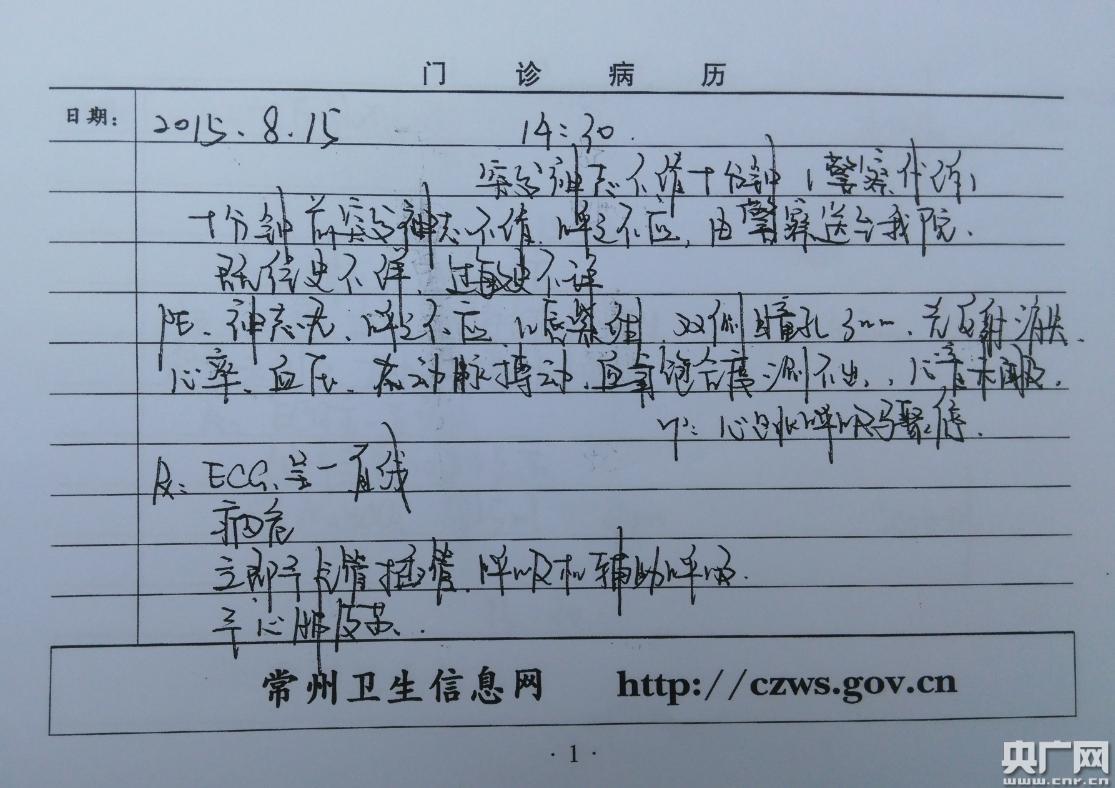 门诊病历
日期： 2015.8.15 14:30.
突发神志不清十分钟（警察代诉）
十分钟前突发神志不清，呼之不应，由警察送至我院.
既往史不详，过敏史不详
PE、神志无、呼之不应、口唇紫绀，双侧瞳孔3mm、光反射消失、
心率、血压、大动脉搏动、血氧饱合度测不出，心音未闻及.
心跳呼吸骤停.
Rx: ECG、呈一直线
病危
立即予气管插管、呼吸机辅助呼吸.
予心肺复苏、.
常州卫生信息网 http://czws.gov.cn
·1·
央广网
www.cnr.cn